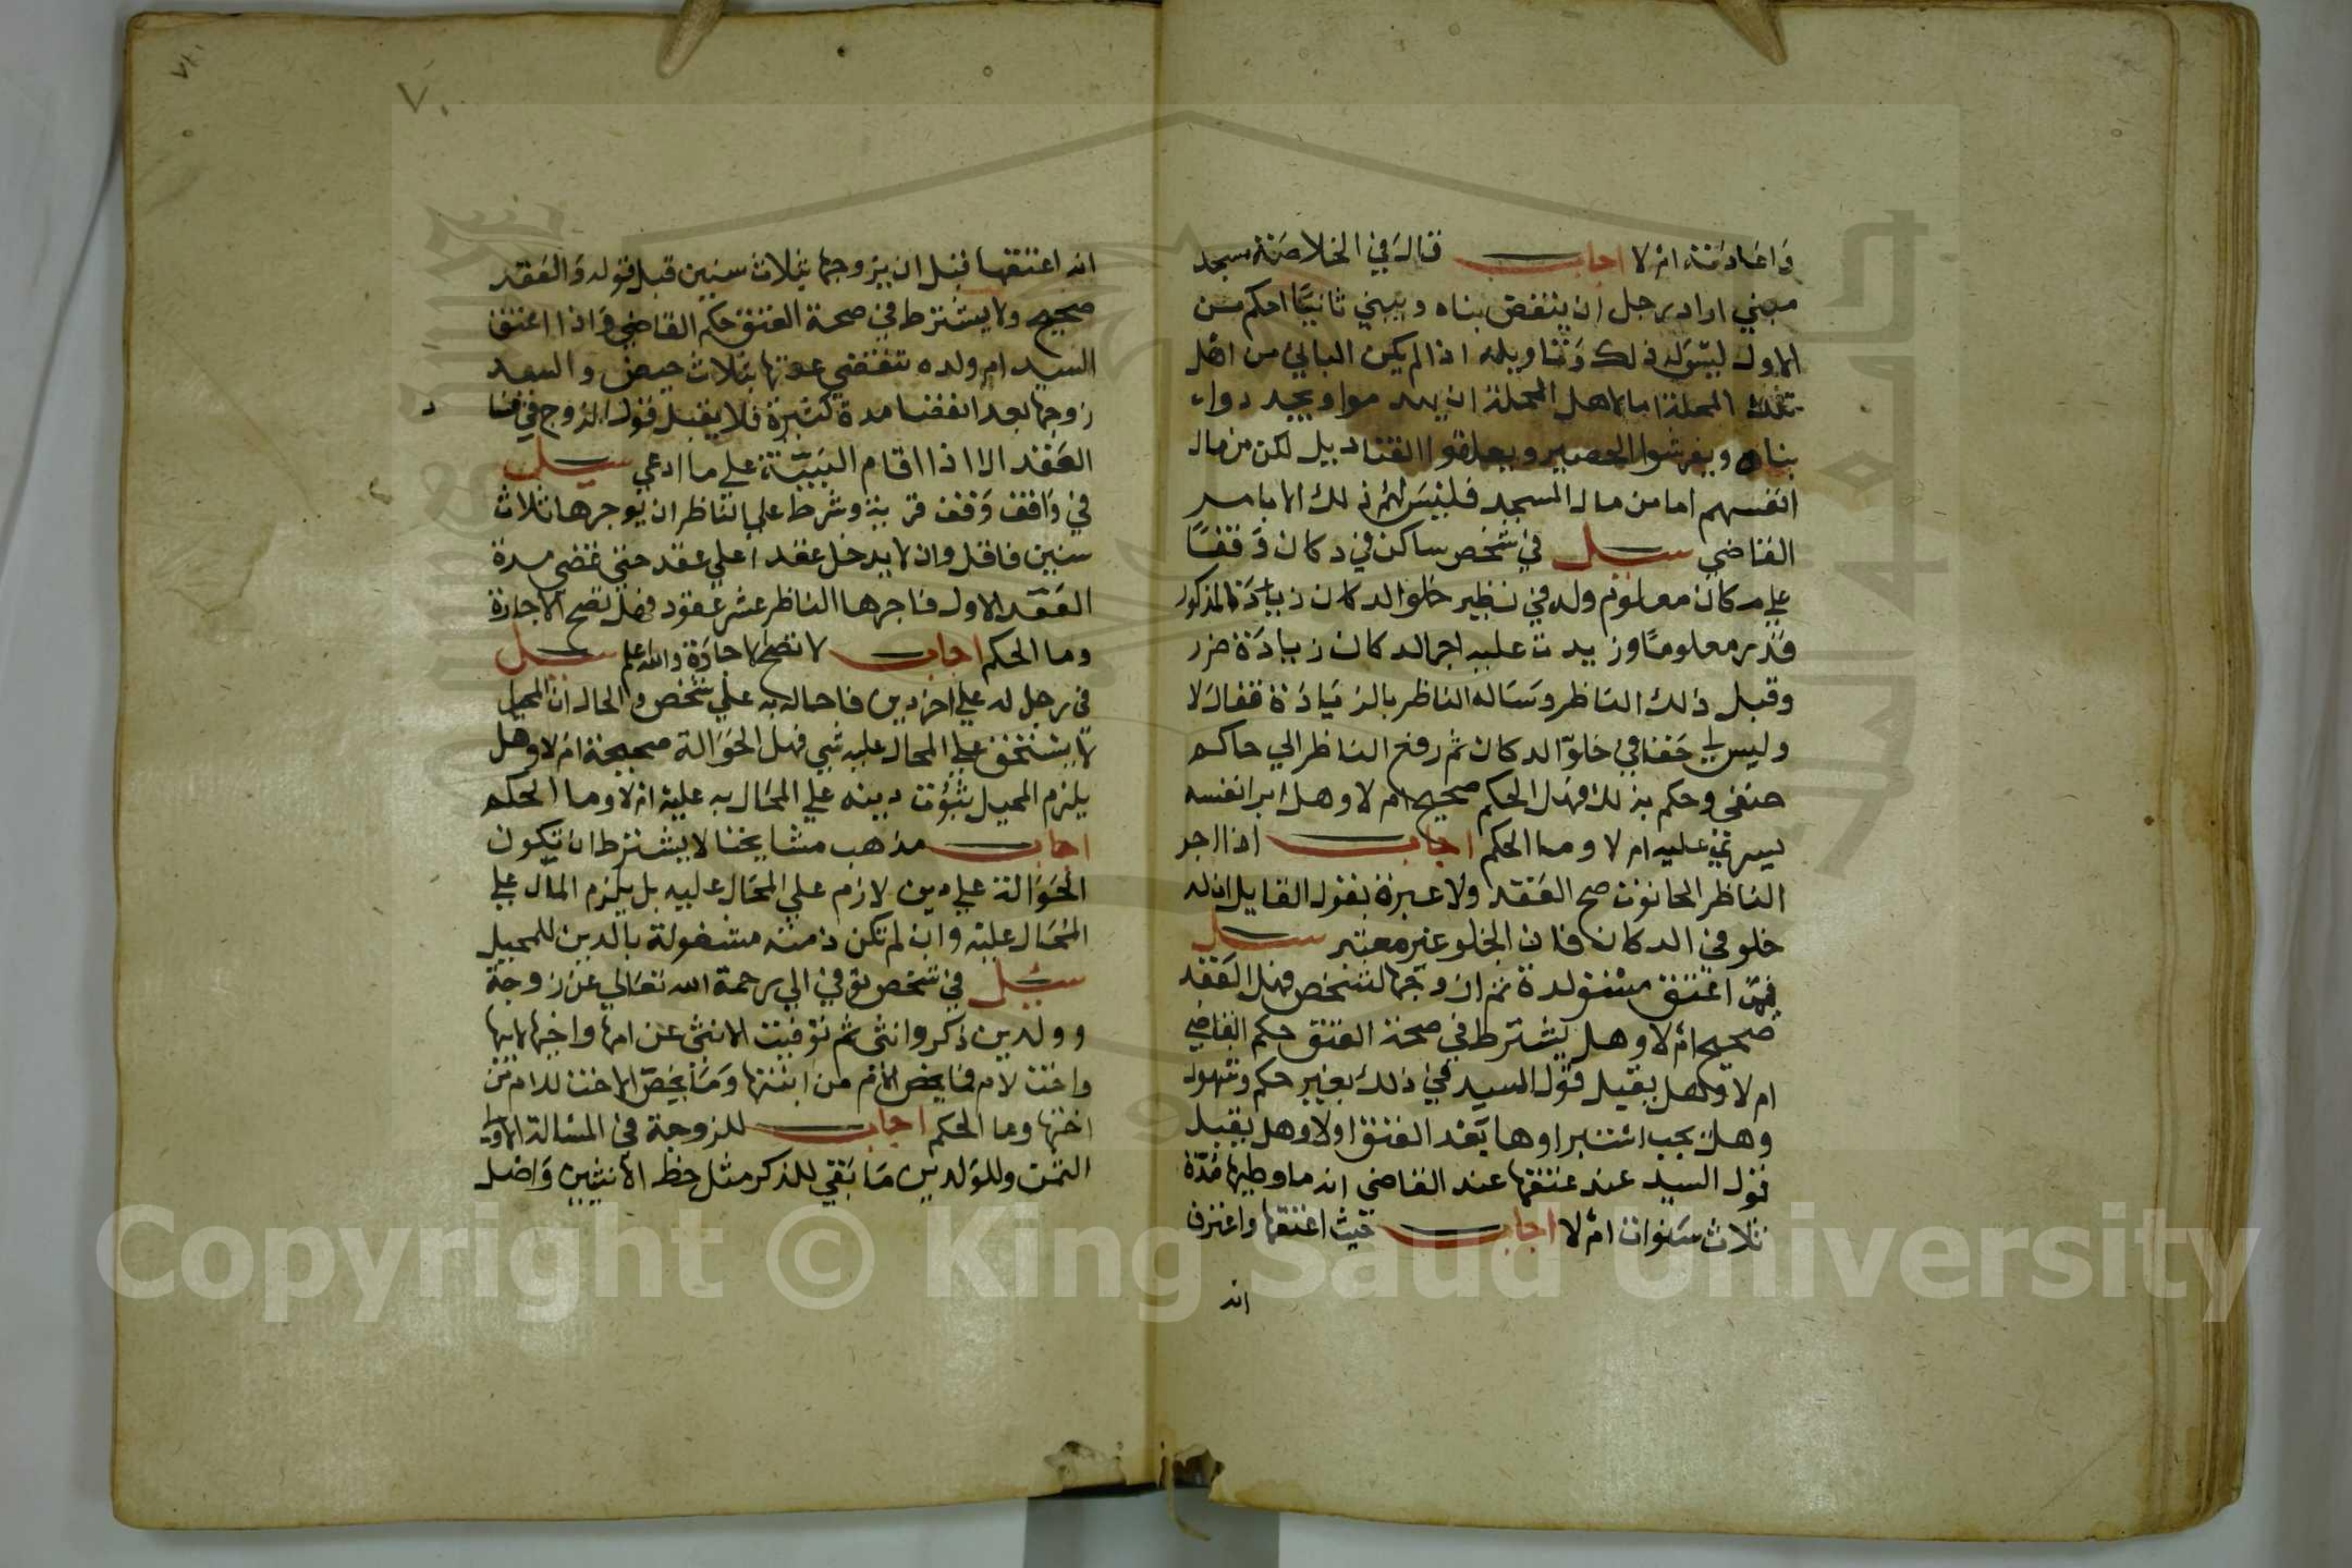 واعادته ام لا اجاب قال في الخلاصة مسجد
مبني اراد رجل ان ينقض بناه ويبني ثانيا احكم من
الاول ليس له ذلك وتاويله اذا لم يكن الباني من اهل
تلك المحلة اما لاهل المحلة ان يهدموا ويجددوا
بناه ويفرشوا الحصير ويعلقوا القناديل لكن من مال
انفسهم اما من مال المسجد فليس لهم ذلك الا بامر
القاضي سيل في شخص ساكن في دكان وقفا
على مكان معلوم وله في نظير خلو الدكان زيادة المذكور
قدر معلوما وزيدت عليه اجرة الدكان زيادة ضرر
وقبل ذلك الناظر وساله الناظر بالزيادة فقال لا
وليس لي حقا في خلو الدكان ثم رفع الناظر الي حاكم
حنفي وحكم بذلك فهل الحكم صحيح ام لا وهل ابرا نفسه
عليه ام لا وما الحكم اجاب اذا اجر
الناظر الحانوت صح العقد ولا عبرة بقول القايل ان له
خلو في الدكان فان الخلو غير معتبر سيل
فيمن اعتق مستولدة ثم ان زوجها لشخص فهل العقد
صحيح ام لا وهل يشترط في صحة العتق حكم القاضي
ام لا وهل يقبل قول السيد في ذلك بغير حكم وشهود
وهل يجب استبراوها بعد العتق اولا وهل يقبل
قول السيد عند عتقها عند القاضي انه ما وطيها مدة
ثلاث سنوات ام لا اجاب حيث اعتقها واعترف
انه
٧٠
٧١
انه اعتقها قبل ان يزوجها بثلاث سنين قبل قوله والعقد
صحيح ولا يشترط في صحة العتق حكم القاضي واذا اعتق
السيد ام ولده تنقضي عدتها بثلاث حيض والسيد
زوجها بعد انقضا مدة كثيرة فلا يقبل قول الزوج في فساد
العقد الا اذا اقام البينة على ما ادعي سيل
في واقف وقف قرية وشرط علي الناظر ان يوجرها ثلاث
سنين فاقل وان لا يدخل عقدا علي عقد حتي تمضي مدة
العقد الاول فاجرها الناظر عشر عقود فهل تصح الاجارة
وما الحكم اجاب لا تصح الاجارة والله اعلم سيل
في رجل له علي اخر دين فاحاله به علي شخص والحال ان المحيل
لا يستحق علي المحال عليه شي فهل الحوالة صحيحة ام لا وهل
يلزم المحيل بثبوت دينه علي المحال به عليه ام لا وما الحكم
اجاب مذهب مشايخنا لا يشترط ان تكون
الحوالة علي دين لازم علي المحال عليه بل يلزم المال علي
المحال عليه وان لم تكن ذمته مشغولة بالدين للمحيل
سيل في شخص توفي الي رحمة الله تعالي عن زوجة
وولدين ذكر وانثى ثم توفيت الانثى عن امها واخيها لابيها
واخت لام فما يخص الام من ابنتها وما يخص الاخت للام من
اختها وما الحكم اجاب للزوجة في المسالة الاولي
الثمن وللولدين ما بقي للذكر مثل حظ الانثيين واصل
Copyright © King Saud University